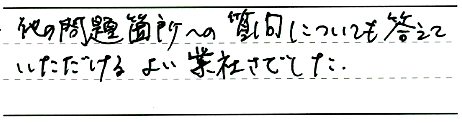 他の問題箇所への質問についても答えて
いただける よい業社さでした.